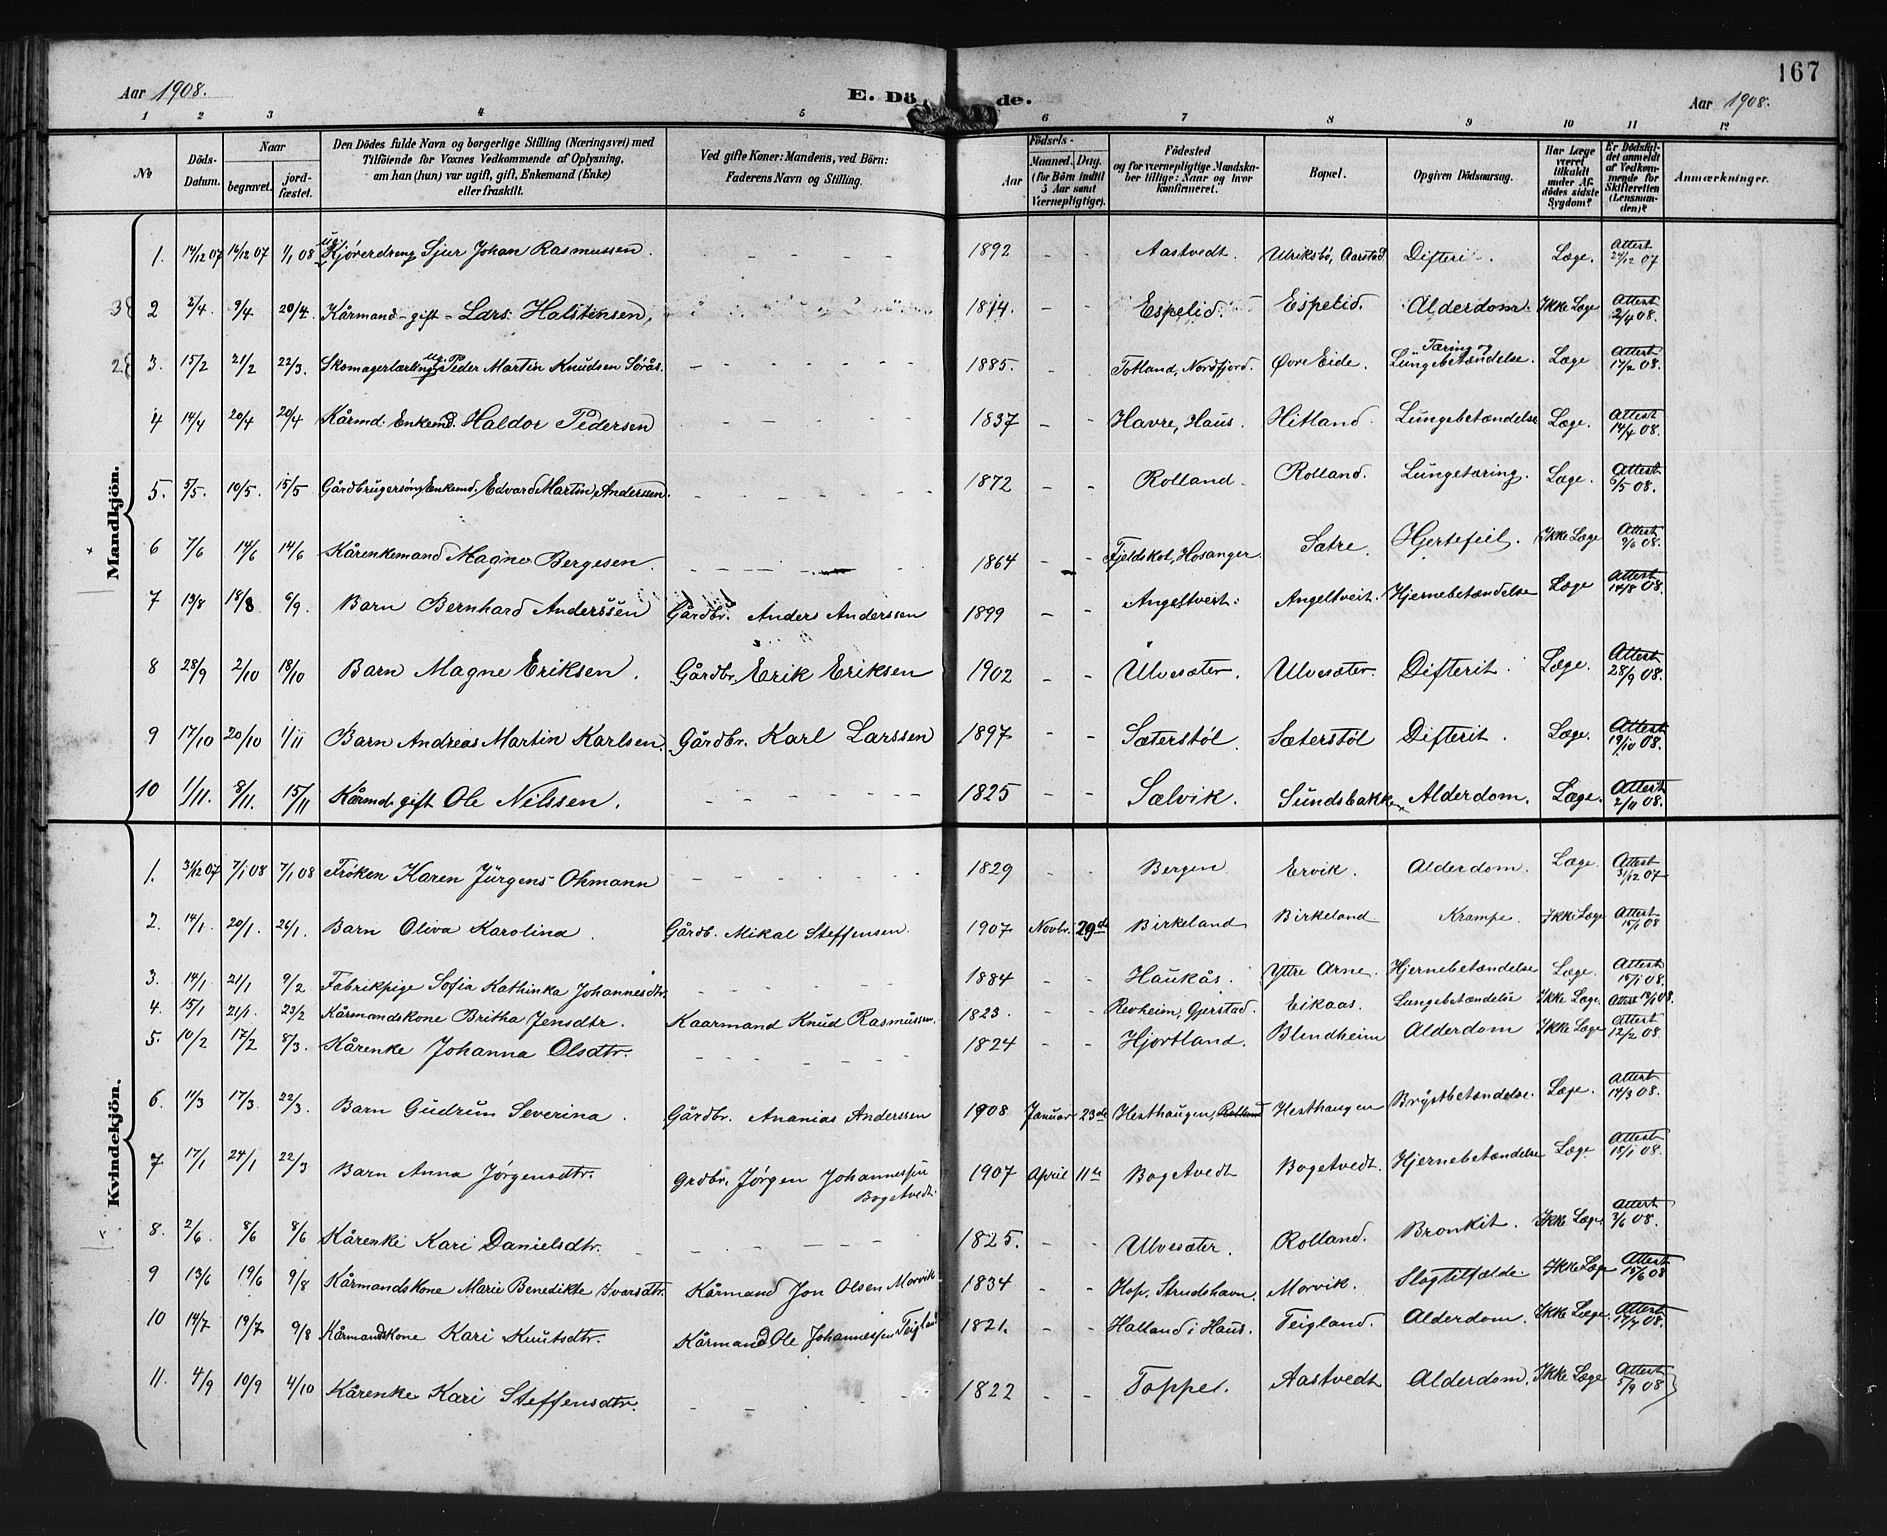 167
Aar 1908. E. Dö de. Aar 1908.
1 2 3 4 5 6 7 8 9 10 11 12
No Döds-Datum. Naar begravet. jordfæstet. Den Dödes fulde Navn og borgerlige Stilling (Næringsvei) med Tilföiende for Voxnes Vedkommende af Oplysning, om han (hun) var ugift, gift, Enkemand (Enke) eller fraskilt. Ved gifte Koner: Mandens, ved Börn: Faderens Navn og Stilling. Födsels- Aar Maaned. Dag. (for Börn indtil 5 Aar samt Værnepligtige). Födested og for værnepligtige Mandskaber tillige: Naar og hvor konfirmeret. Bopæl. Opgiven Dödsaarsag. Har Læge været tilkaldt under Afdödes sidste Sygdom? Er Dödsfaldet anmeldt af Vedkommende for Skifteretten (Lensmanden)? Anmærkninger.
Mandkjön.
1. 14/12 07 14/12 07 1/1 08 ug. Kjørerdreng Sjur Johan Rasmussen. - - - 1892 - - Aastvedt. Ulriksbø, Aarstad. Difteri. Læge. Attest 24/12 07
2 2/4. 9/4 20/4. Kårmand - gift - Lars Halstensen, 1814. - - Espelid. Espelid. Alderdom. Ikke Læge Attest 2/4 08.
3. 15/2 21/2 22/3. Skomagerlærling ug. Peder Martin Knudsen Sörås. - - - 1885. - - Totland, Nordfjord. Øvre Eide. Tæring og Lungebetændelse. Læge Attest 17/2 08.
4 14/4 20/4 20/4 Kårmd. Enkemd. Haldor Pedersen - - - 1837 - - Havre, Haus. Hitland. Lungebetændelse Læge. Attest 14/4 08.
5. 5/5. 10/5. 15/5 Gårdbrugersøn, Enkemd, Edvard Martin Anderssen. - - - 1872 - - Rolland. Rolland. Lungetæring. Læge. Attest 6/5 08.
6 7/6 14/6 14/6 Kårenkemand Magne Bergesen. - - - 1864 - - Fjeldskot, Hosanger. Sætre. Hjertefeil. Ikke Læge Attest 9/6 08.
7 13/8 18/8 6/9. Barn Bernhard Anderssen Gårdbr. Anders Anderssen 1899 - - Angeltveit. Angeltveit. Hjernebetændelse Læge Attest 14/8 08.
8 28/9 2/10 18/10 Barn Magne Eriksen. Gårdbr. Erik Eriksen 1902 - - Ulvesæter. Ulvesæter. Difterit. Læge. Attest 28/9 08.
9 17/10 20/10 1/11 Barn Andreas Martin Karlsen. Gårdbr. Karl Larssen 1897 - - Sæterstøl. Sæterstøl Difterit. Læge. Attest 19/10 08.
10 1/11. 8/11. 15/11 Kårmd. gift Ole Nilssen. - - - 1825 - - Sælvik. Sundsbakken Alderdom. Læge. Attest 2/11 08.
Kvindekjön.
1. 31/12 07 7/1 08 7/1 08 Frøken Karen Jürgens Ohmann - - - 1829 - - Bergen Ervik. Alderdom. Læge. Attest 31/12 07
2. 14/1. 20/1. 26/1. Barn Oliva Karolina. Gårdb. Mikal Steffensen. 1907 Novbr. 29de Birkeland Birkeland Krampe. Ikke Læge Attest 15/1 08
3. 14/1 21/1 9/2 Fabrikpige Sofia Kathinka Johannesdtr. - - - 1884 - - Haukås. Yttre Arne. Hjernebetændelse Læge. Attest 15/1 08.
4. 15/1 21/1. 23/2 Kårmandskone Britha Jensdtr. Kaarmand Knud Rasmussen. 1823. - - Revheim, Gjerstad. Eikaas. Lungebetændelse Ikke Læge. Attest 17/1 08.
5. 10/2 17/2 8/3. Kårenke Johanna Olsdtr. - - - 1824 - - Hjortland. Blindheim Alderdom Ikke Læge Attest 12/2 08.
6. 11/3 17/3. 22/3. Barn Gudrun Severina. Gårdbr. Ananias Anderssen 1908 Januar 23de Hesthaugen, Rolland Hesthaugen Brystbetændelse. Læge. Attest 14/3 08.
7 17/1 24/1 22/3 Barn Anna Jørgensdtr. Grdbr. Jørgen Johannessen Bogetvedt. 1907 April 11te Bogetvedt Bogetvedt. Hjernebetændelse Læge Attest 18/1 08.
8. 2/6. 8/6 8/6 Kårenke Kari Danielsdtr. - - - 1825. - - Ulvesæter. Rolland. Bronkit. Ikke Læge. Attest 3/6 08.
9 13/6 19/6 9/8 Kårmandskone Marie Benedikte Ivarsdtr. Kårmand Jon Olsen Morvik. 1834 - - Hop. Strudshavn. Morvik. Slagtilfælde Ikke Læge Attest 15/6 08
10 14/7 19/7 9/8 Kårmandskone Kari Knutsdtr. Kårmand Ole Johannessen Teigland 1821. - - Halland i Haus. Teigland. Alderdom. Ikke Læge Attest 17/7 08.
11. 4/9 10/9 4/10 Kårenke Kari Steffensdtr. - - - 1822 - - Toppe. Aastvedt Alderdom. Ikke Læge Attest 5/9 08